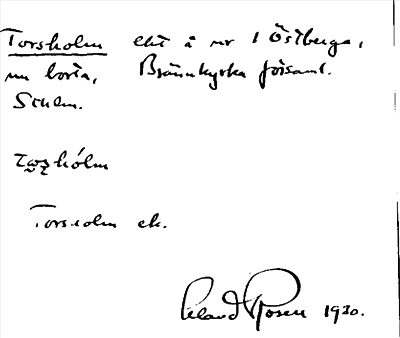 Torsholm ekt å nr 1 Östberga,
nu borta, Brännkyrka församl.
Sthlm.
Torsholm ek.
Rosén 1930.